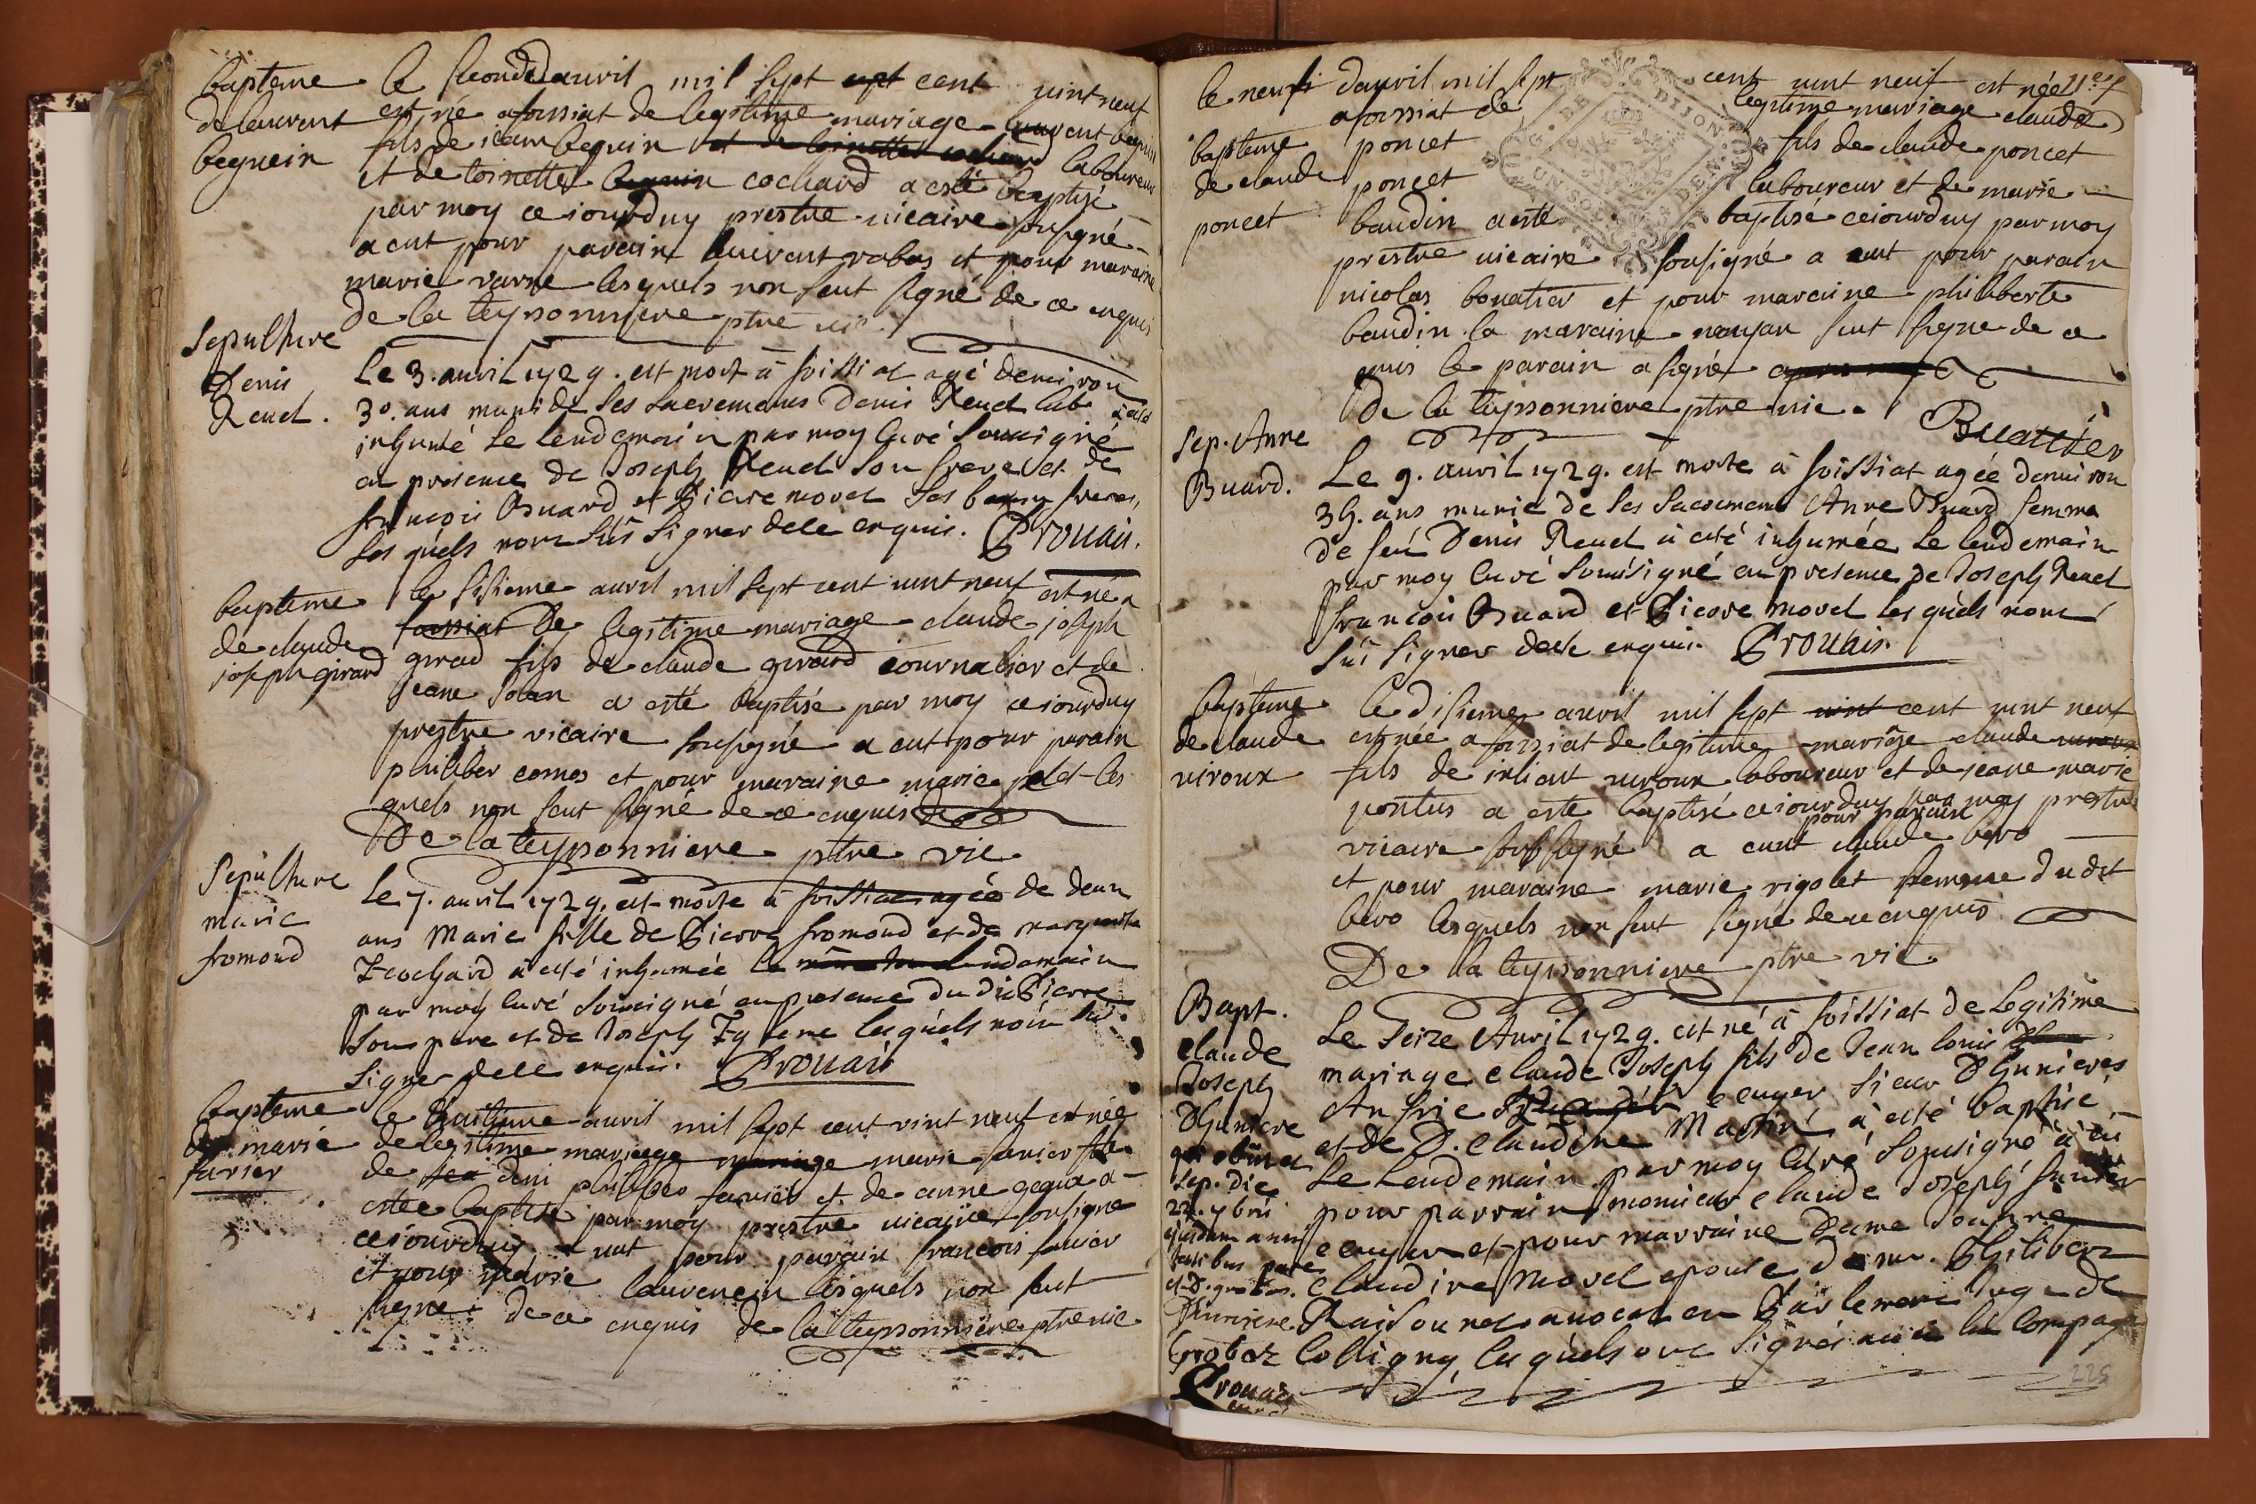 bapteme
de laurent
beguein
le second dauvril mil sept cent vint neuf
est né a foissiat de legitime mariage laurent beguin
fils de iean beguin et de toinette cochard laboureur
et de toinette beguin cochard a esté baptisé
par moy ce iourduy prestre vicaire sousigné
a eut pour parain et pour maraine
marie varne lesquels non seut signé de ce enquis
de la teyssonniere ptre vic.
Sepulture
Denis
Reud.
Le 3. avril 1729. est mort à foissiat agé denviron
30. ans muni de ses sacremens Denis Reud lab. a esté
inhumé le lendemain par moy curé soussigné
en presence de Joseph Reud son frere et de
françois Buard et Pierre morel ses beaux freres,
lesquels nont sus signer de ce enquis. Prouais.
bapteme
de claude
joseph girard
le sisieme avril mil sept cent vint neuf est né a
foissiat de legitime mariage claude joseph
girad fils de claude girard iournalier et de
jeane a esté baptisé par moy ce iourduy
prestre vicaire sousigné a eut pour parain
philiber comas et pour maraine marie les
quels non seut signé de ce enquis
De la teyssonniere ptre vic
Sepulture
marie
fromond
Le 7. avril 1729. est morte à foissiat agée de deux
ans Marie fille de Pierre fromond et de marguerite
cochard à esté inhumée le lendemain
par moy curé soussigné en presence du dit Pierre
son pere et de Joseph lesquels nont sû
signer de ce enquis. Prouais
bapteme
de marie
favier
le huitieme avril mil sept cent vint neuf est née
de legitime mariage mariage marie favier fille
de deni philiber favier et de anne a
estée baptisé par moy prestre vicaire sousigne
ceiourduy a eut pour parain francois favier
et pour marie laurencin lesquels non seut
signe de ce enquis de la teyssonniere ptre vic
bapteme
de claude
poncet
le neufi davril mil sept cent vint neuf est née
a foissiat de legitime mariage claude
poncet fils de claude poncet
poncet laboureur et de marie
baudin a esté baptisé ceiourduy par moy
prestre vicaire sousigné a eut pour parain
nicolas bouatier et pour maraine philiberte
baudin la maraine nayan seut signe de ce
enquis le parain a signé
De la teyssonniere ptre vic.
Buattier
G. DE DIJON
Sep. Anne
Buard.
Le 9. avril 1729. est morte à foissiat agée denviron
35. ans munie de ses sacremens Anne Buard femme
de feu Denis Reud à esté inhumée le lendemain
par moy curé soussigné en presence de Joseph Reud
françois Buard et Pierre morel lesquels nont
sus signer de ce enquis. Prouais.
bapteme
de claude
viroux
le disieme avril mil sept vint cent vint neuf
est née a foissiat de legitime mariage claude viroux
fils de viroux laboureur et de jeane marie
pontus a esté baptisé ceiourduy par moy prestre
pour parain
vicaire sousigné a eut claude bero
et pour maraine marie rigolet femme du dit
bero lesquels non seut signé de ce enquis
De la teyssonniere ptre vic.
Bapt.
claude
Joseph
D'hunieres
qui obiit et
sep. die
22. 7bris
Groboz
Prouais
curé
Le seize Avril 1729. est né à foissiat de legitime
mariage claude Joseph fils de Jean louis
Anfrie ecuyer sieur D'hunieres
et de D. claudine Martin à esté baptisé
le lendemain par moy curé soussigné à eü
pour parrain monsieur claude Joseph
ecuyer et pour marraine Dame
claudine Morel epouse de mr. Philibert
avocat en Parlement Juge de
Colligny lesquels ont signés avec la compag
225